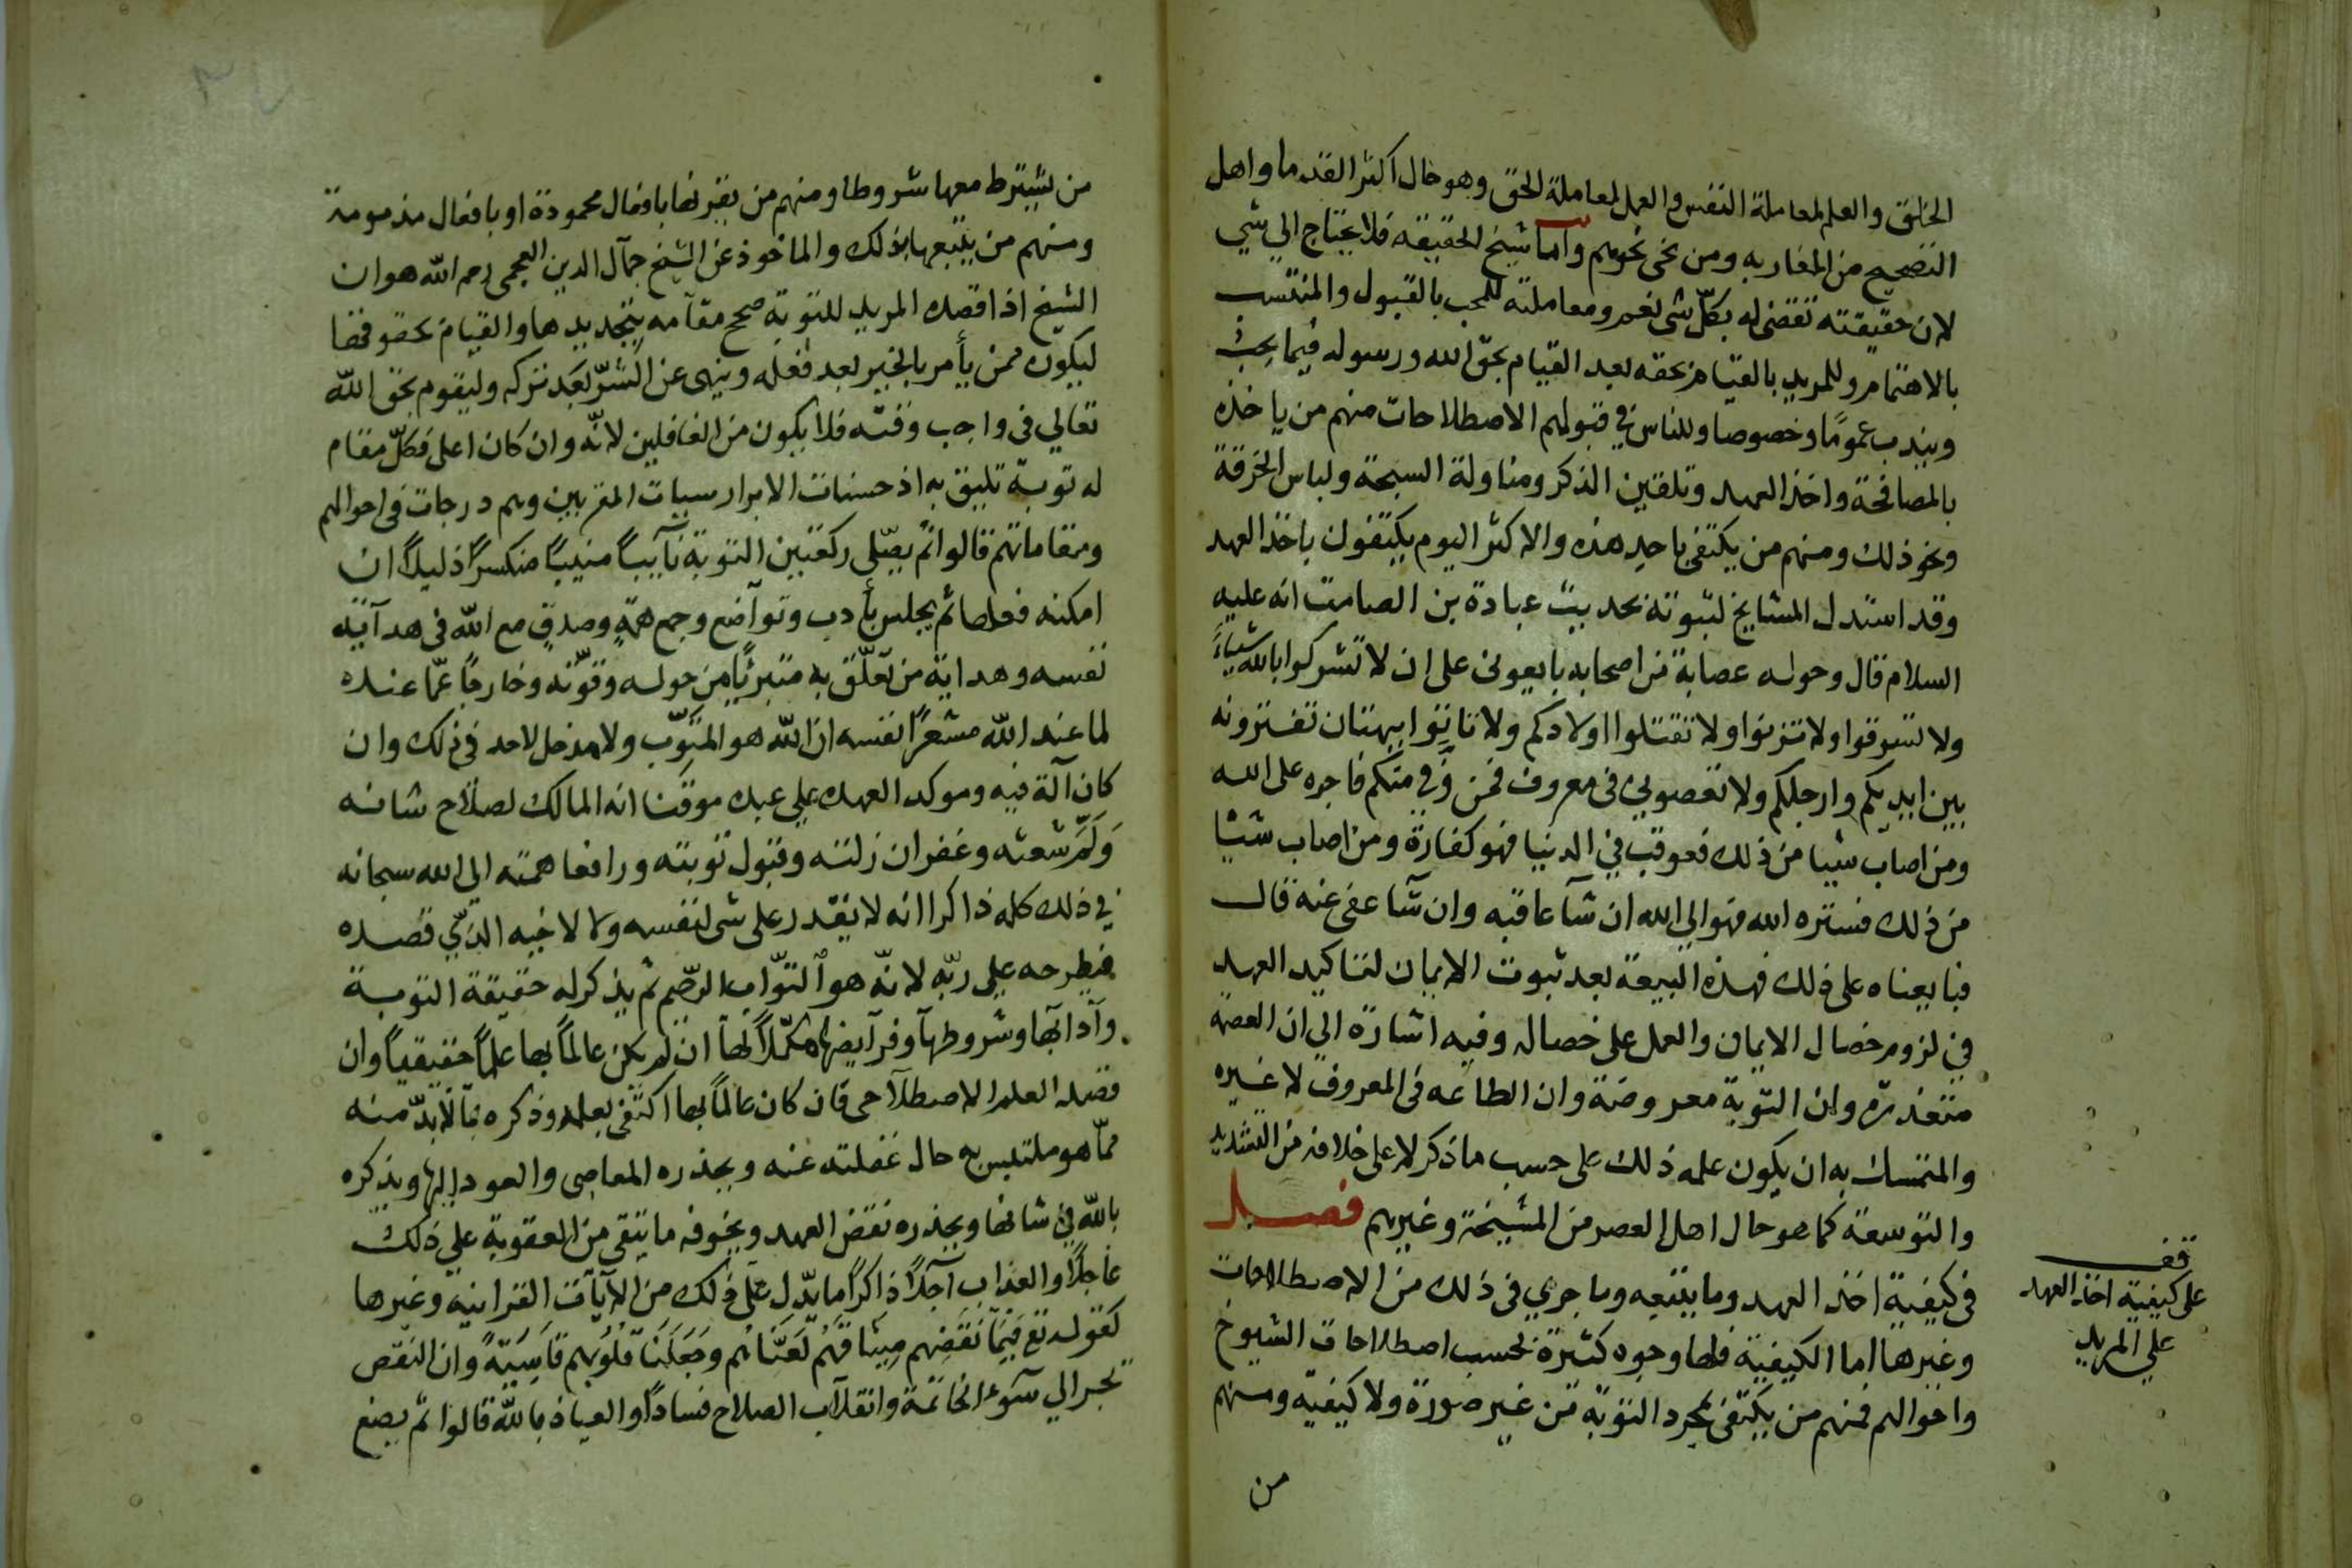 الخلق والعلم لمعاملة النفس والعمل لمعاملة الحق وهو حال اكثر القدما واهل
النصحيح من المغاربه ومن نحى نحوهم واما شيخ الحقيقه فلا يحتاج الي شي
لان حقيقته تقضى له بكلّ شى نعم ومعاملته للمحب بالقبول والمنتسب
بالاهتمام وللمريد بالقيام بحقه بعد القيام بحق الله ورسوله فيما يجب
ويندب عمومًا وخصوصا وللناس في قبولهم الاصطلاحات منهم من ياخذه
بالمصافحة واخذ العهد وتلقين الذكر ومناولة السبحة ولباس الخرقة
ونحو ذلك ومنهم من يكتفى باحد هذه والاكثر اليوم يكتفون باخذ العهد
وقد استدل المشايخ لثبوته بحديث عبادة بن الصامت انه عليه
السلام قال وحوله عصابة من اصحابه بايعونى على ان لا تشركوا بالله شياءً
ولا تسرقوا ولا تزنوا ولا تقتلوا اولادكم ولا تاتوا ببهتان تفترونه
بين ايديكم وارجلكم ولا تعصوني فى معروف فمن وَفي منكم فاجره على الله
ومن اصاب شيا من ذلك فعوقب في الدنيا فهو كفارة ومن اصاب شيئا
من ذلك فستره الله فهو الي الله ان شآ عاقبه وان شآ عفى عنه قال
فبايعناه على ذلك فهذه البيعة بعد ثبوت الايمان لتاكيد العهد
في لزوم خصال الايمان والعمل على خصاله وفيه اشارة الي ان العصمة
متعذرة وان التوبة معروضة وان الطاعه فى المعروف لا غيره
والمتمسك به ان يكون علمه ذلك على حسب ما ذكر لا على خلافه من التشديد
والتوسعة كما هو حال اهل العصر من المشيخة وغيرهم فصل
فى كيفية اخذ العهد وما يتبعه وما جري فى ذلك من الاصطلاحات
وغيرها اما الكيفية فلها وجوه كثيرة بحسب اصطلاحات الشيوخ
واحوالهم فمنهم من يكتفى بمجرد التوبة من غير صورة ولا كيفية ومنهم
من
قف
على كيفية اخذ العهد
علي المريد
من يشترط معها شروطا ومنهم من يقرنها بافعال محمودة او بافعال مذمومة
ومنهم من يتبعها بذلك والماخوذ عن الشيخ جمآل الدين العجمى رحمه الله هو ان
الشيخ اذا قصده المريد للتوبة صحح مقآمه بتجديدها والقيام بحقوقها
ليكون ممن يأمر بالخير بعد فعله وينهى عن الشرّ بعَد تركه وليقوم بحق الله
تعالي فى واجب وقته فلا يكون من الغافلين لانّه وان كان اعلى فكلّ مقام
له توبة تليق به اذ حسنات الابرار سيات المقربين وهم درجات فى احوالهم
ومقاماتهم قالوا ثم يصّلى ركعتين التوبة تآيبًا منيبًا منكسرًا ذليلاً ان
امكنه فعلها ثم يجلس بأدب وتوآضع وجمع همّةٍ وصدقٍ مع الله فى هدآية
نفسه وهداية من تعلّق به متبرئًا من حوله وقوّته وخارجًا عمّا عنده
لما عند الله مشعرًا نفسه ان الله هو المتوّب ولا مدخل لاحد فى ذلك وان
كان آلة فيه وموكد العهد علي عبده موقنا انه المالك لصلآح شانه
وَلَمّ شعثه وغفران زلته وقبول توبته ورافعا همته الي الله سبحانه
في ذلك كله ذاكرا انه لا يقدر على شى لنفسه ولا لاخيه الذي قصده
فيطرحه علي ربّه لانّه هو التوّاب الرحيم ثم يذكر له حقيقة التوبة
وآدابها وشروطها وفرآيضها مكمّلاً لها ان لم يكن عالمًا بها علمًا حقيقيًا وان
قصد العلم الاصطلآحى فان كان عالمًا بها اكتفى بعلمه وذكره بما لا بدّ منه
ممّا هو ملتبس به حال غفلته عنه ويحذره المعاصى والعود إليها ويذكره
بالله في شانها ويحذره نقض العهد ويخوفه ما يتقى من العقوبة علي ذلك
عاجلاً والعذاب آجلاً ذاكرًا ما يدّل على ذلك من الآيآت القرانيه وغيرها
كقوله تع فَبِمَا نَقضِهم مِيثَاقَهُم لَعنّاهُم وَجَعَلنَا قُلُوبهم قَاسِيَةً وان النقض
يجر الي سَوء الخاتمة وانقلآب الصلاح فسادًا والعياذ بالله قالوا ثم يضع